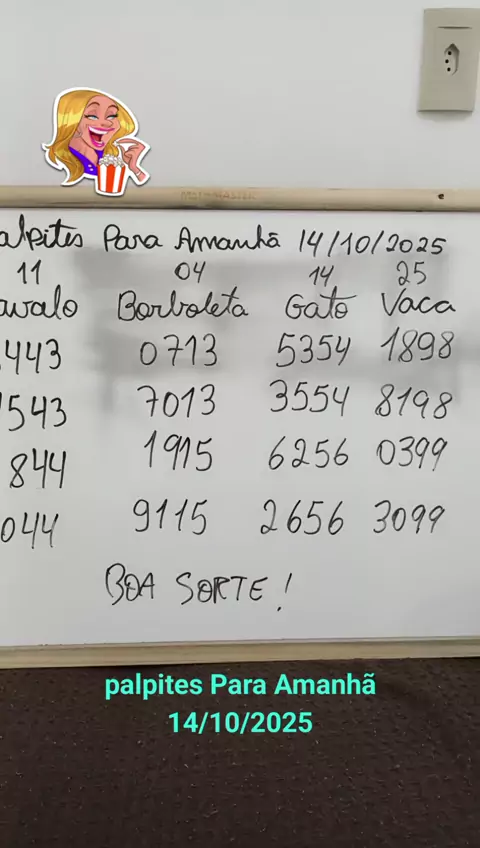 alpites Para Amanhã 14/10/2025
11 04 14 25
avalo Borboleta Gato Vaca
443 0713 5354 1898
543 7013 3554 8198
844 1915 6256 0399
044 9115 2656 3099
BOA SORTE!
palpites Para Amanhã
14/10/2025